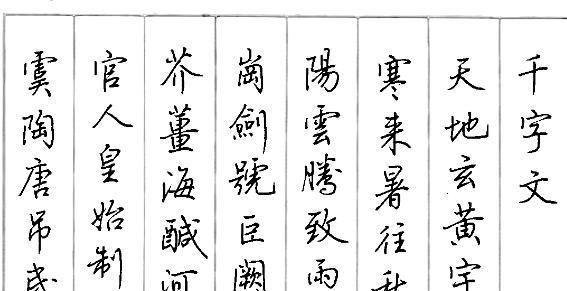 千字文
天地玄黃宇
寒来暑往秋
陽雲騰致雨
崗劍號巨闕
芥薑海醎河
官人皇始制
虞陶唐吊民